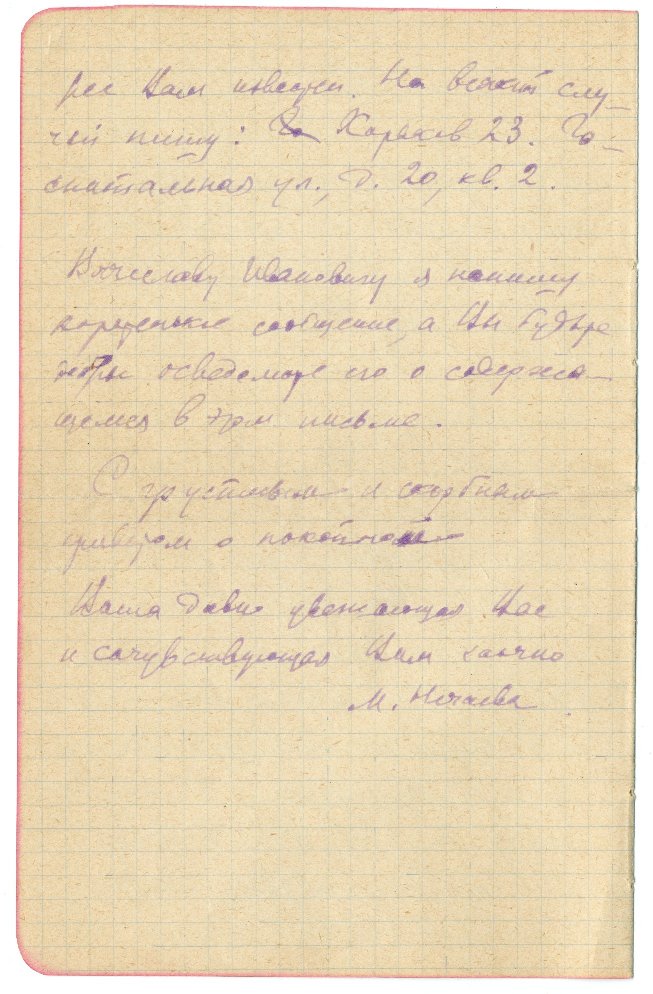 рес Вам известен. На всякий слу-
чай пишу: Харьков 23. Го-
спитальная ул., д. 20, кв. 2.
Вячеславу Ивановичу я напишу
коротенькое сообщение, а Вы будьте
добры осведомите его о содержа-
щемся в этом письме.
С грустным и скорбным
приветом о покойной
Ваша давно уважающая Вас
и сочувствующая Вам заочно
М. Нечаева